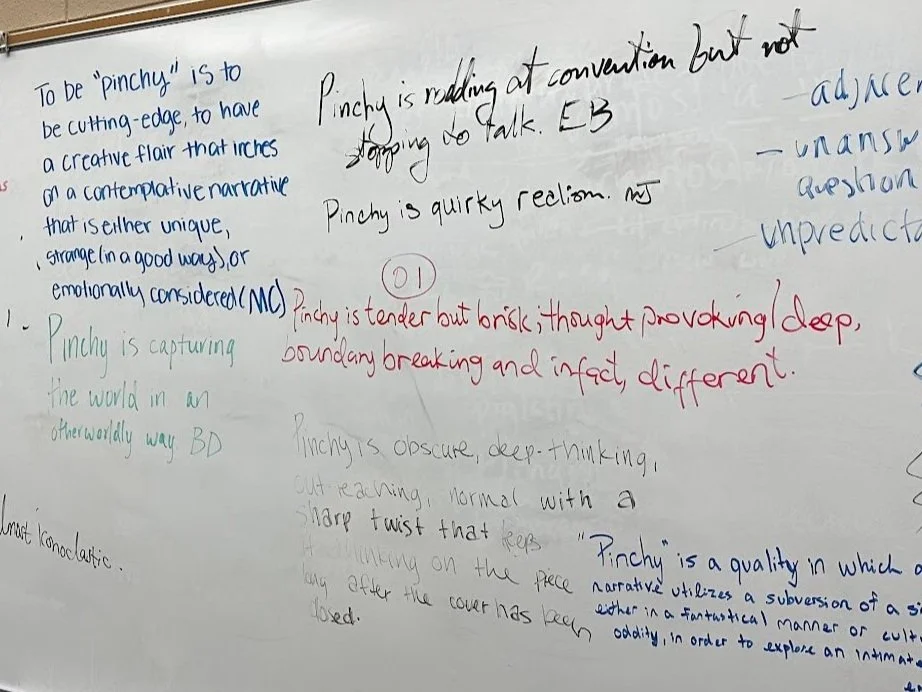 To be "pinchy" is to
be cutting-edge, to have
a creative flair that inches
on a contemplative narrative
that is either unique,
strange (in a good way), or
emotionally considered (MC)
Pinchy is capturing
the world in an
otherworldly way. BD
iconoclastic.
Pinchy is at convention but not
stopping to talk. EB
Pinchy is quirky realism. MJ
01
Pinchy is tender but brisk; thought provoking/deep,
boundary breaking and infact, different.
Pinchy is obscure, deep-thinking,
out-reaching, normal with a
sharp twist that keeps
thinking on the piece
long after the cover has been
closed.
- unansw
question
- unpredicta
"Pinchy" is a quality in which a
narrative utilizes a subversion of a
either in a fantastical manner or cult
oddity, in order to explore an intimat